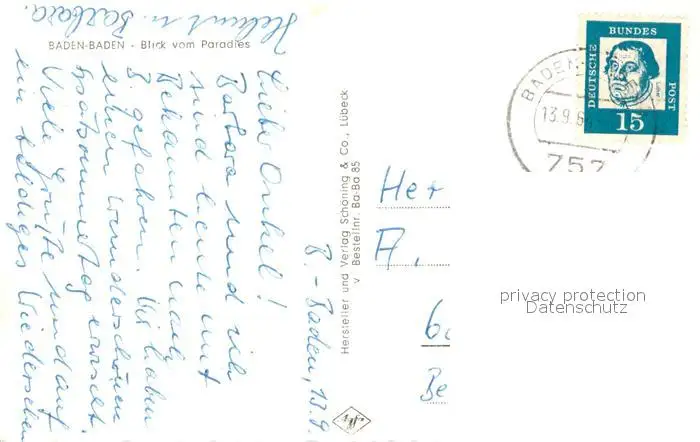 Helmut u. Barbara.
BADEN-BADEN - Blick vom Paradies
B.-Baden, 13.9.
Lieber Onkel!
Barbara und ich
sind heute mit
Bekannten nach
B. gefahren. Wir haben
einen wunderschönen
Spätsommertag erwischt
Viele Grüße und auf
ein baldiges Wiedersehen
Hersteller und Verlag Schöning & Co., Lübeck
v Bestellnr. Ba-Ba 85
Agfa
DEUTSCHE BUNDES POST
Luther
15
BADEN
13.9.6
757
Her
A.
Be
privacy protection
Datenschutz